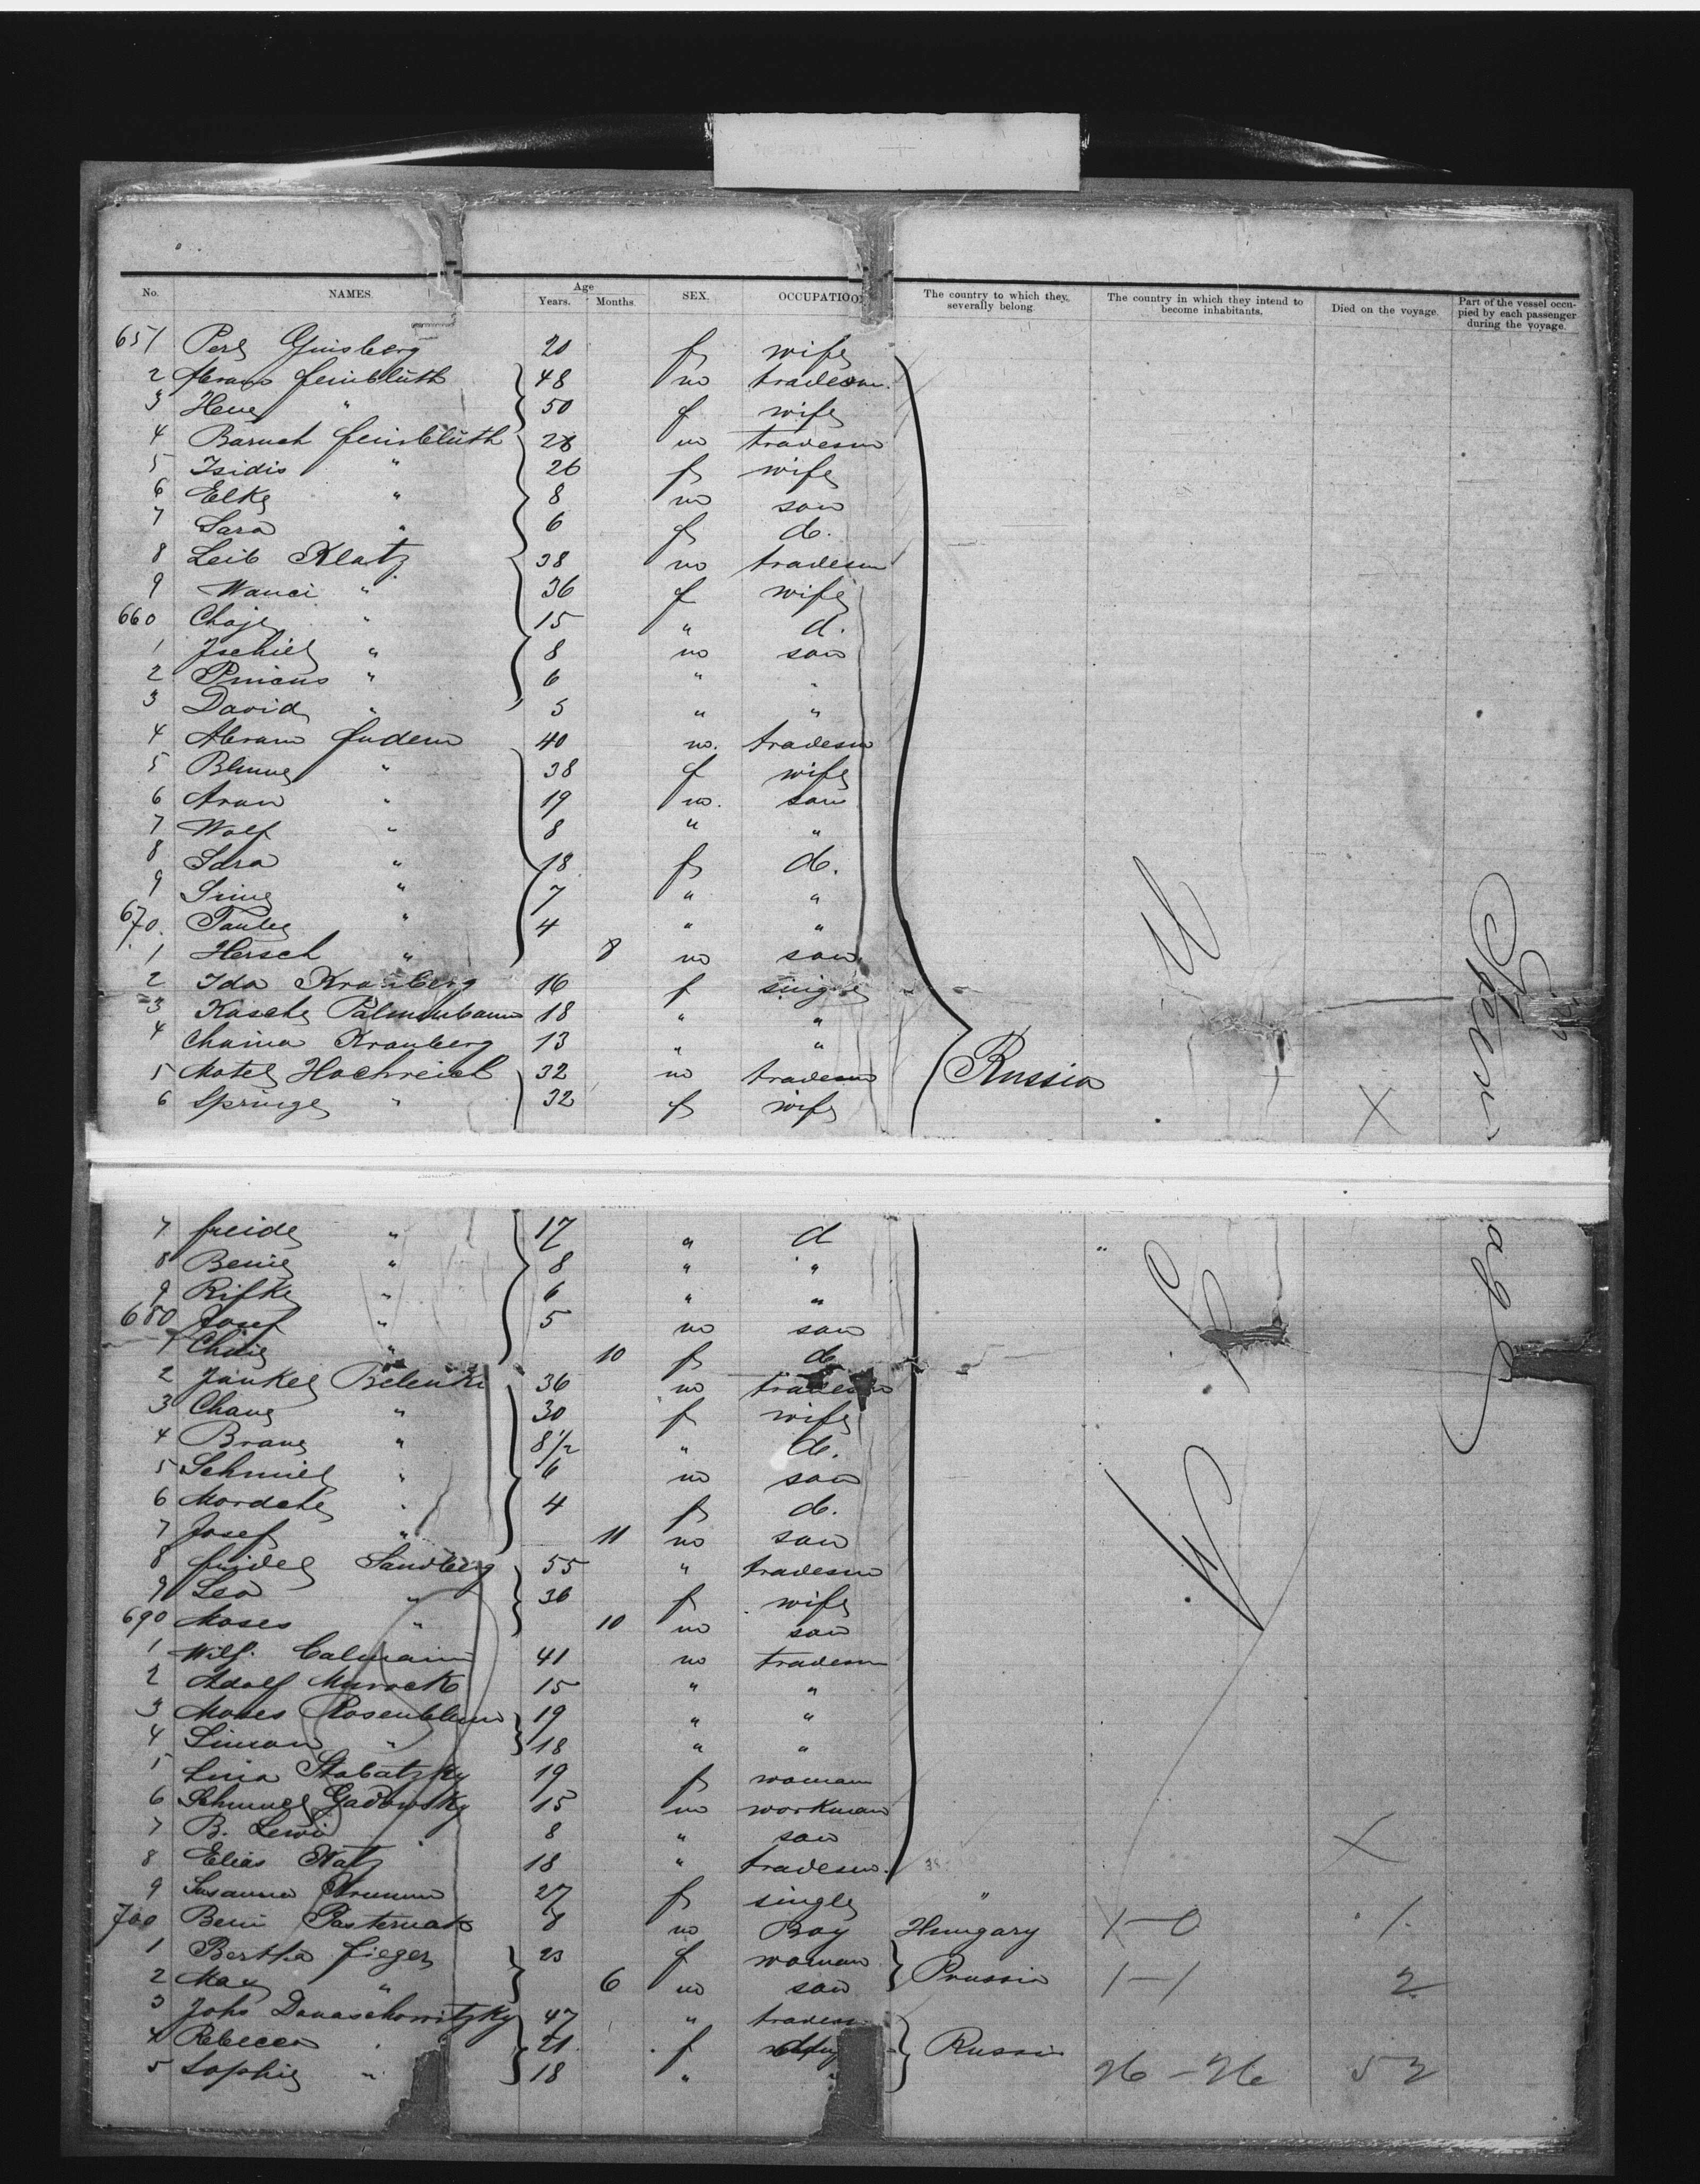 No. NAMES. Age Years. Months. SEX. OCCUPATION The country to which they severally belong. The country in which they intend to become inhabitants. Died on the voyage. Part of the vessel occupied by each passenger during the voyage.
651 Perl Ginsberg 20 f wife
2 Abram Feinblüth 48 m tradesm.
3 Hene " 50 f wife
4 Baruch Feinblüth 28 m tradesm
5 Isidis " 26 f wife
6 Elke " 8 m son
7 Sara " 6 f d.
8 Leib Klatz 38 m tradesm
9 " 36 f wife
660 Chaje " 15 " d.
1 Jechiel " 8 m son
2 Pincus " 6 " "
3 David " 5 " "
4 Abram Judem 40 m. tradesm
5 Blume " 38 f wife
6 Aron " 19 m. son
7 Wolf " 8 " "
8 Sara " 18 f d.
9 " 7 " "
670. Taube " 4 " "
1 Hersch " 8 m son
2 Ida Kranberg 16 f single
3 Kasche Palmenbaum 18 " "
4 Chaina Kranberg 13 " "
5 Motel Hochreich 32 m tradesm Russia
6 Springe " 32 f wife
7 Freide " 17 " d
8 Benie " 8 " "
9 Rifke " 6 " "
680 Josef " 5 m son
1 " 10 f d
2 Jankel Belenki 36 m tradesm
3 Chane " 30 f wife
4 Brane " 8 1/2 " d.
5 Schmiel " 6 m son
6 Mordche " 4 f d.
7 Josef " 11 m son
8 Sandberg 55 " tradesm
9 Lea " 36 f wife
690 Moses " 10 m son
1 Wilf. Calmann 41 m tradesm
2 Adolf Murock 15 " "
3 Moses Rosenblum 19 " "
4 Simon " 18 " "
5 Lina Stabatzky 19 f woman
6 Schmuel Gadowsky 15 m workman
7 B. Lewin 8 " son
8 Elias Katz 18 " tradesm.
9 Susanna 27 f single "
700 Beni Pasternak 8 m Boy Hungary 1-0 1
1 Bertha Fieger 23 f woman Prussia 1-1 2
2 Max " 6 m son
3 Johs Danaschowitzky 47 " tradesm
4 Rebecca " 21 f Russia
5 Sophie " 18 " " 26-26 52